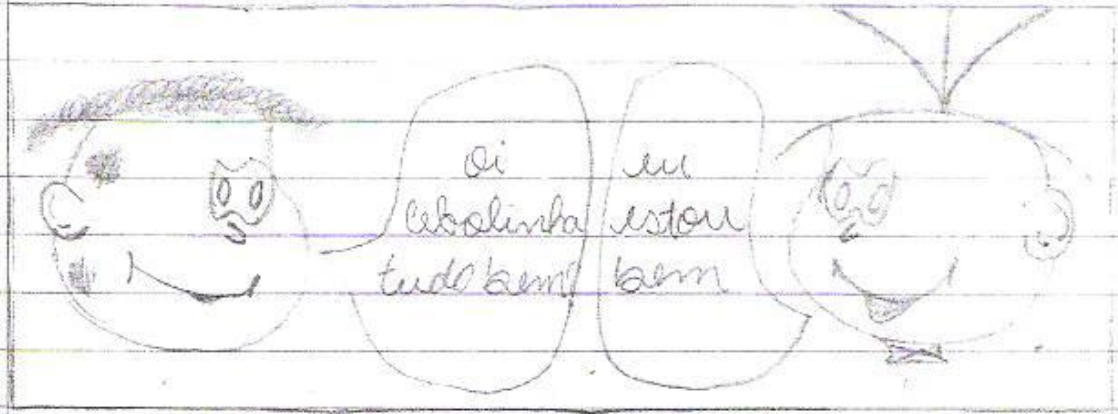 oi
cebolinha
tudo bem
eu
estou
bem